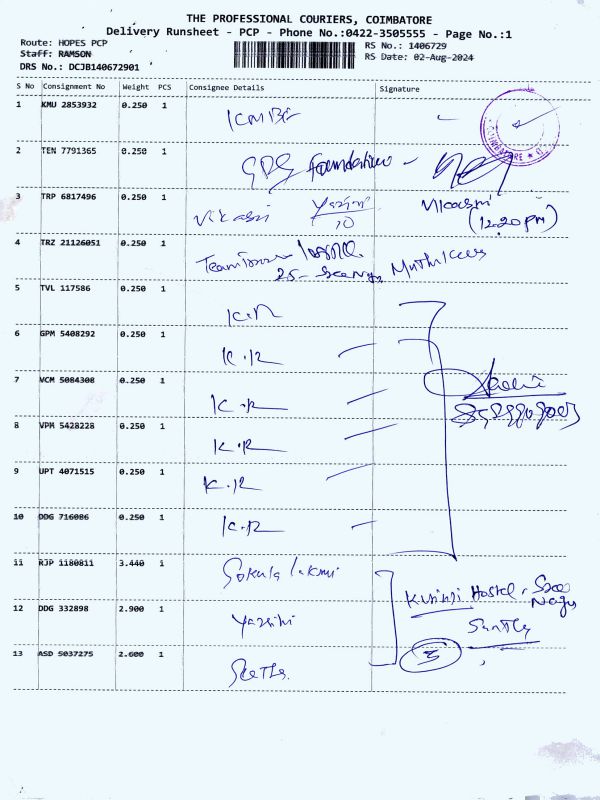 THE PROFESSIONAL COURIERS, COIMBATORE
Delivery Runsheet - PCP - Phone No.:0422-3505555 - Page No.:1
Route: HOPES PCP
RS No.: 1406729
Staff: RAMSON
RS Date: 02-Aug-2024
DRS No.: DCJB140672901
S No Consignment No Weight PCS Consignee Details Signature
1 KMU 2853932 0.250 1
2 TEN 7791365 0.250 1 foundation
3 TRP 6817496 0.250 1 Vikasni Yazini Vikasni
10 (12.20 pm)
4 TRZ 21126051 0.250 1
25-
5 TVL 117586 0.250 1
6 GPM 5408292 0.250 1 K.R
7 VCM 5084308 0.250 1 K.R
8 VPM 5428228 0.250 1 K.R
9 UPT 4071515 0.250 1 K.R
10 DDG 716086 0.250 1 K.R
11 RJP 1180811 3.440 1 Gokula lakmi
Hostel
12 DDG 332898 2.900 1 Yazini
13 ASD 5037275 2.600 1
3